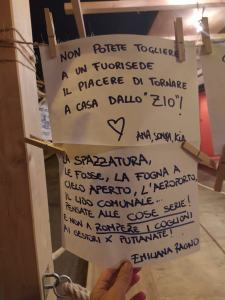 NON POTETE TOGLIERE
A UN FUORISEDE
IL PIACERE DI TORNARE
A CASA DALLO "ZIO"!
ANA, SONJA, KIA
LA SPAZZATURA,
LE FOSSE, LA FOGNA A
CIELO APERTO, L'AEROPORTO,
IL LIDO COMUNALE...
PENSATE ALLE COSE SERIE!
E NON A ROMPERE I COGLIONI
AI GESTORI X PUTIANATE!
EMILIANA RAGNO